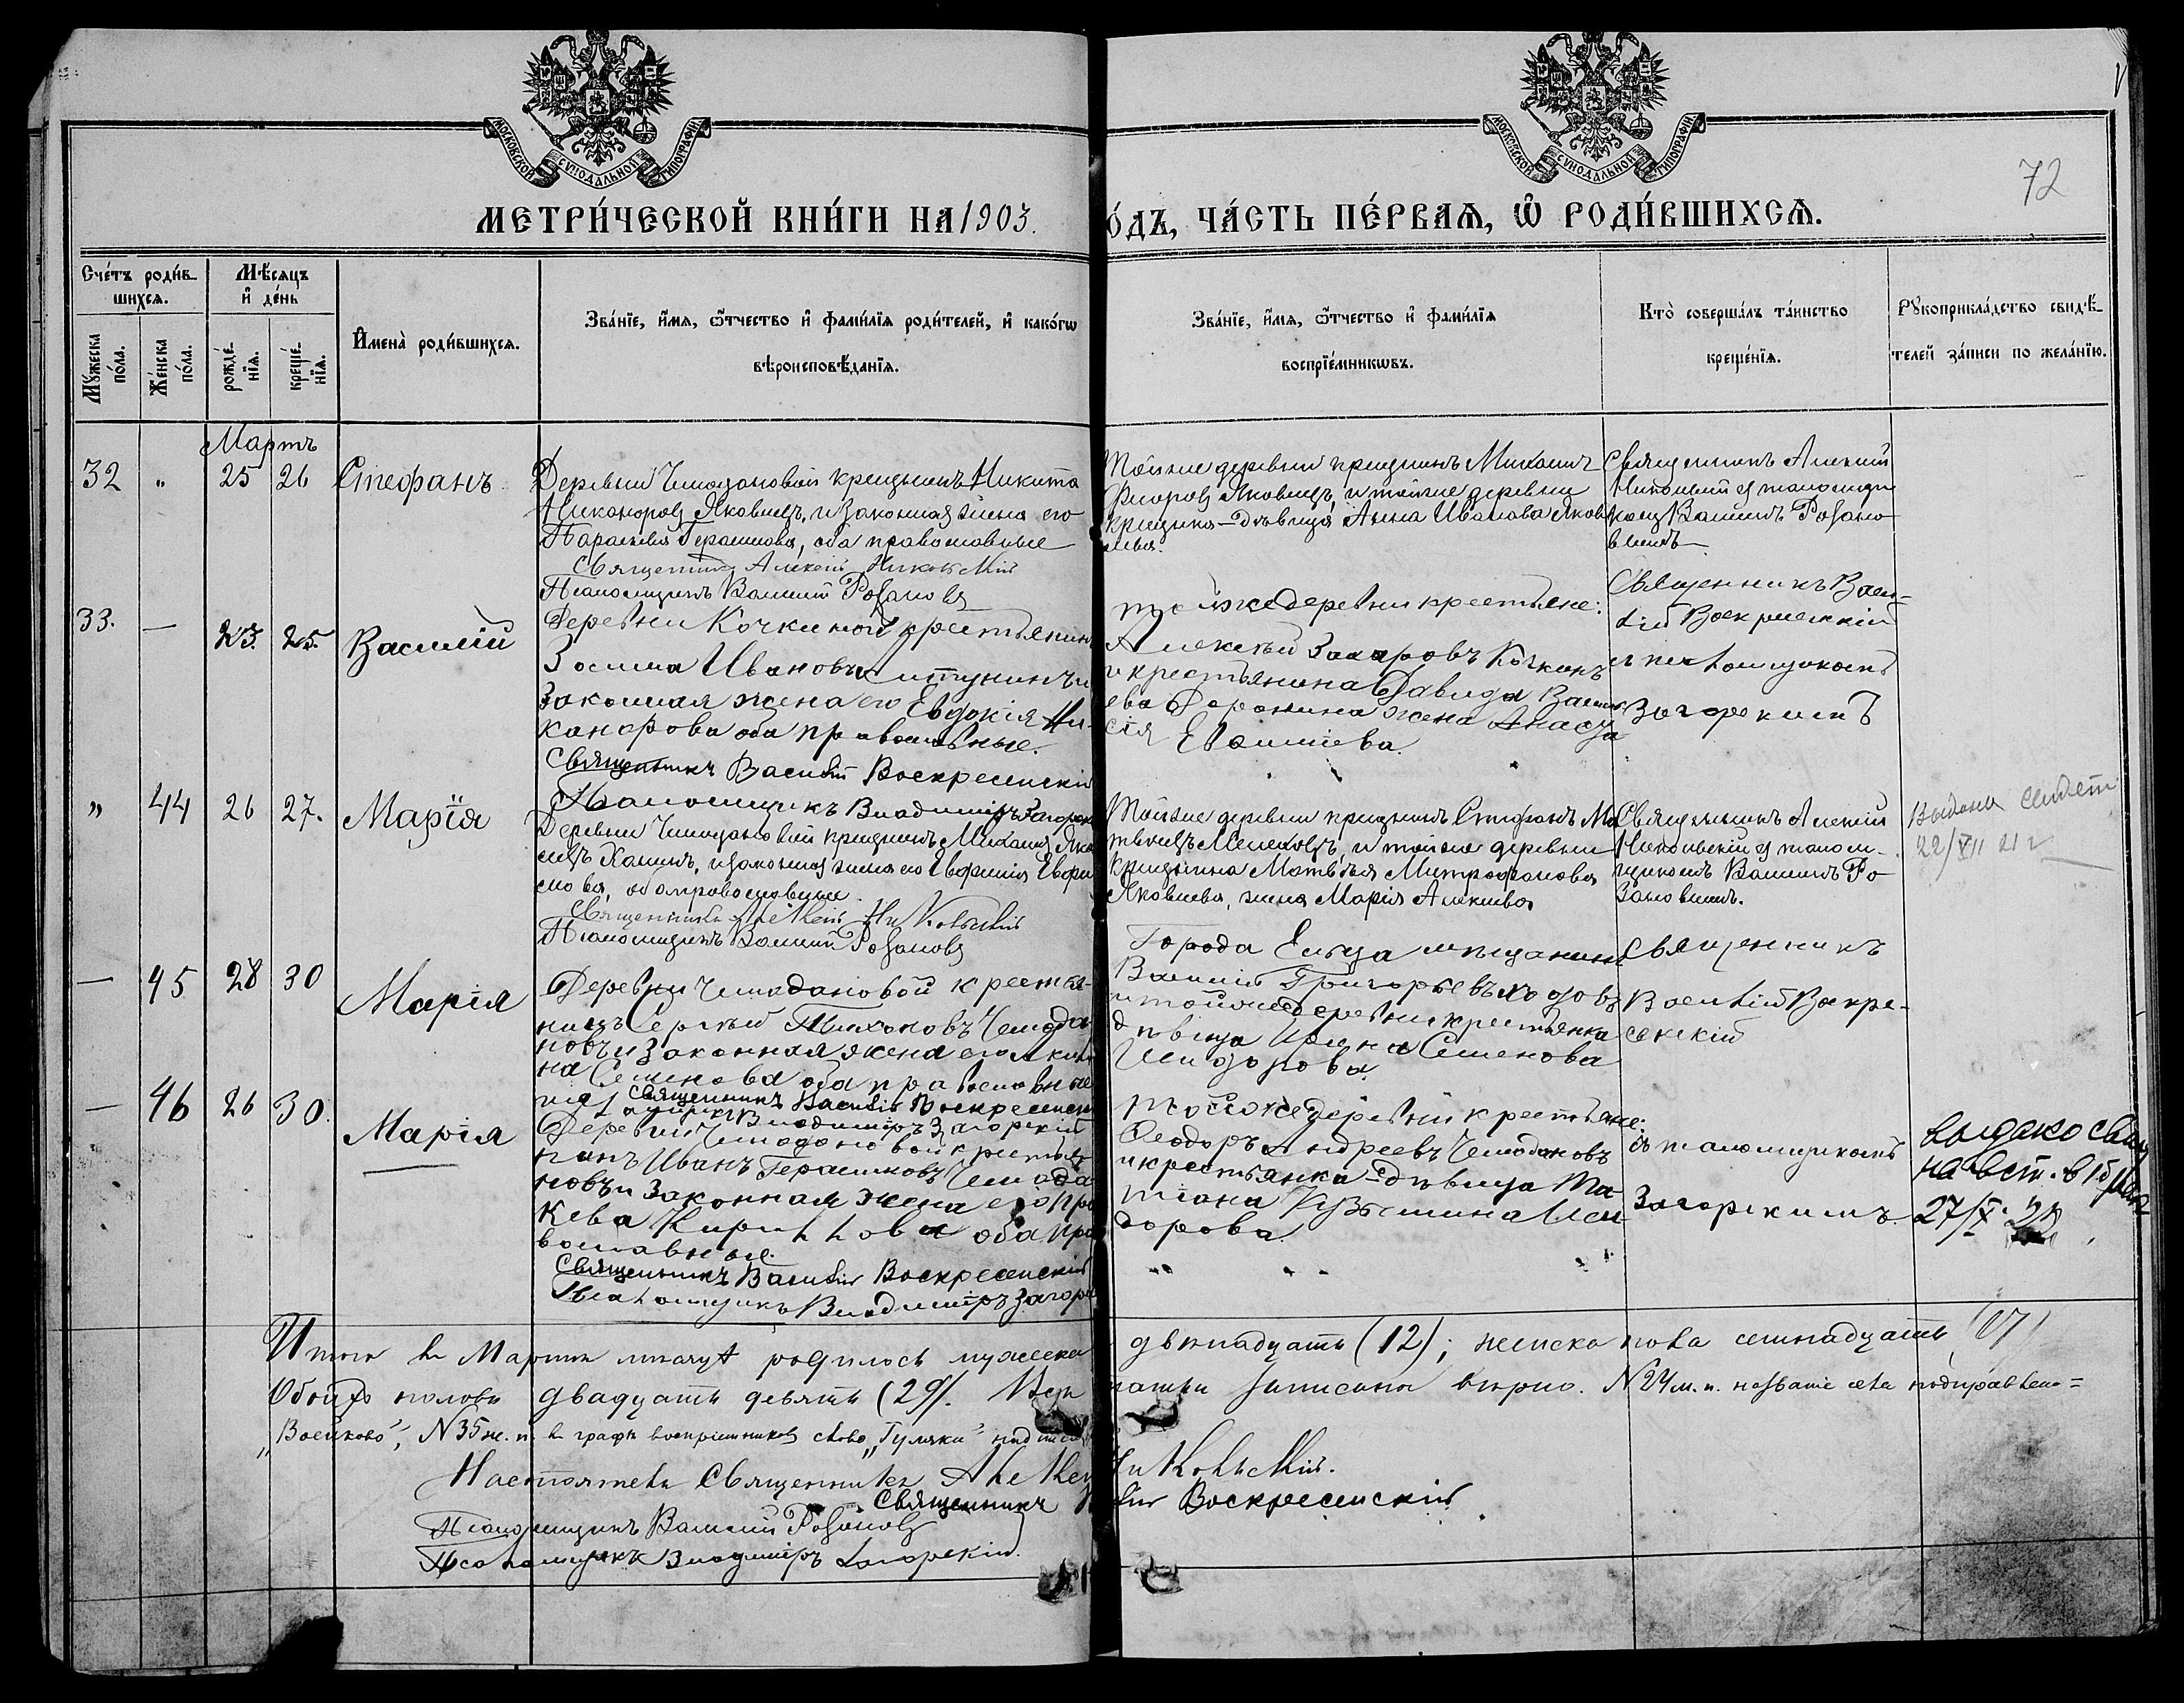 МОСКОВСКОЙ СѴНОДАЛЬНОЙ ТИПОГРАФІИ
МОСКОВСКОЙ СѴНОДАЛЬНОЙ ТИПОГРАФІИ
72
МЕТРИ́ЧЕСКОЙ КНИ́ГИ НА 1903.
О́ДЪ, ЧА́СТЬ ПЕ́РВАѦ, Ѡ҆ РОДИ́ВШИХСѦ.
Сче́тъ роди́в-
шихсѧ.
Мѣ́сѧцъ
и҆ де́нь
Мꙋ́жеска по́ла.
Же́нска по́ла.
рожде́-
нїѧ.
креще́-
нїѧ.
И҆мена̀ роди́вшихсѧ.
Зва́нїе, и҆́мѧ, ѻ҆́тчество и҆ фами́лїѧ роди́телей, и҆ како́гѡ
вѣроисповѣ́данїѧ.
Зва́нїе, и҆́мѧ, ѻ҆́тчество и҆ фами́лїѧ
воспрїе́мникѡвъ.
Кто̀ соверша́лъ та́инство
креще́нїѧ.
Рꙋкоприкла́дство свидѣ́-
телей за́писи по жела́нїю.
Мартъ
32 " 25 26 Стефанъ
Деревни Чемодановой крещнинъ Никита
Никаноровъ Яковлевъ, и законная жена его
Параскева Герасимова, оба православные
Священникъ Алексій Никольскій
Псаломщикъ Василий Розановъ
Тойже деревни крещнинъ Михаилъ
Ѳеоров Яковлевъ, и тойже деревни
крещнка - дѣвица Анна Иванова Яков
лева.
Священникъ Алексій
Никольскій съ псаломщи
комъ Василіемъ Розано
вымъ
33. — 23. 25. Василій
Деревни Кочкиной крестьянин
Зосима Ивановъ
законная жена его Евдокія Ни-
канорова оба православные.
Священникъ Василій Воскресенскій
Псаломщикъ Владиміръ Загорск
тойже деревни крестьяне:
Алексѣй Захаровъ Кочкинъ
и крестьянина Давида Васил
ева Доронина жена Анаста
сія Евсигнеева.
Священникъ Васи-
лій Воскресенскій
съ псаломщикомъ
Загорскимъ
" 44 26 27. Марія
Деревни Чемодановой крещнинъ Михаилъ Яко
влевъ, и законная жена его Евфимія
оба православные.
Священникъ Алексій Никольскій
Псаломщикъ Василий Розановъ
Тойже деревни крещнинъ Стефанъ Ма
твѣевъ и тойже деревни
крещнина Матвѣя Митрофанова
Яковлева, жена Марія Алексѣева
Священникъ Алексій
Никольскій съ псалом-
щикомъ Василіемъ Ро
зановымъ.
Выдано свидет
22/XII 21 г
— 45 28 30 Марія
Деревни Чемодановой крестья-
нинъ Сергѣй Тихоновъ Чемода
новъ и законная жена его Аки
на Семенова оба православные
Священникъ Василій Воскресенск
Владиміръ Загорскій
Города Ельца мѣщанинъ
Василій Григорьевъ
и тойже деревни крестьянка
дѣвица Ирина Семенова
Исидорова.
Священникъ
Василій Воскре-
сенскій
— 46 26 30. Марія
Деревни Чемодановой крестья
нинъ Иванъ Герасимовъ Чемода
новъ и законная жена его Пра
кева Кириллова оба пра
вославные.
Священникъ Василій Воскресенскій
Псаломщикъ Владиміръ Загорс
тойже деревни крестьяне:
Ѳеодоръ Андреевъ Чемодановъ
и крестьянка - дѣвица Та-
тіана Кузьмина Иси-
дорова.
съ псаломщикомъ
Загорскимъ.
выдано свид
на вст. в
27/X
Итого въ Мартѣ мѣсяцѣ родилось мужеска
двѣнадцать (12); женска пола семнадцать (17)
Обоихъ половъ двадцать девять (29). Всѣ
записаны вѣрно. N 24 м. п. названіе села подправлено =
„Воейково“, N 35 ж. п. въ графѣ воспріемниковъ слово „Гуляки“ надпис
Настоятель Священникъ Алексѣй
Никольскій.
Священникъ В
лій Воскресенскій
Псаломщикъ Василий Розановъ
Псаломщикъ Владиміръ Загорскій.